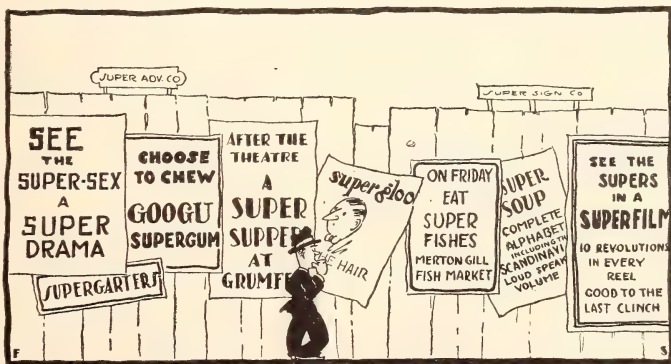 SUPER ADV. CO
SUPER SIGN CO
SEE
THE
SUPER-SEX
A
SUPER
DRAMA
SUPERGARTERS
CHOOSE
TO CHEW
GOOGU
SUPERGUM
AFTER THE
THEATRE
A
SUPER
SUPPER
AT
GRUMF
supergloo
THE HAIR
ON FRIDAY
EAT
SUPER
FISHES
MERTON GILL
FISH MARKET
SUPER
SOUP
COMPLETE
ALPHABET
INCLUDING TH
SCANDINAVI
LOUD SPEAK
VOLUME
SEE THE
SUPERS
IN A
SUPERFILM
10 REVOLUTIONS
IN EVERY
REEL
GOOD TO THE
LAST CLINCH
F
S